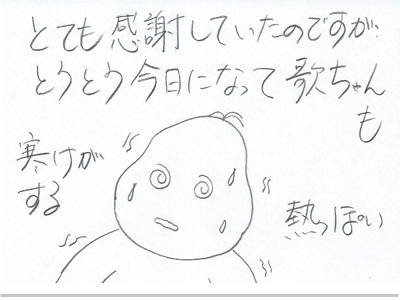 とても感謝していたのですが
とうとう今日になって歌ちゃん
も
寒けが
する
熱っぽい